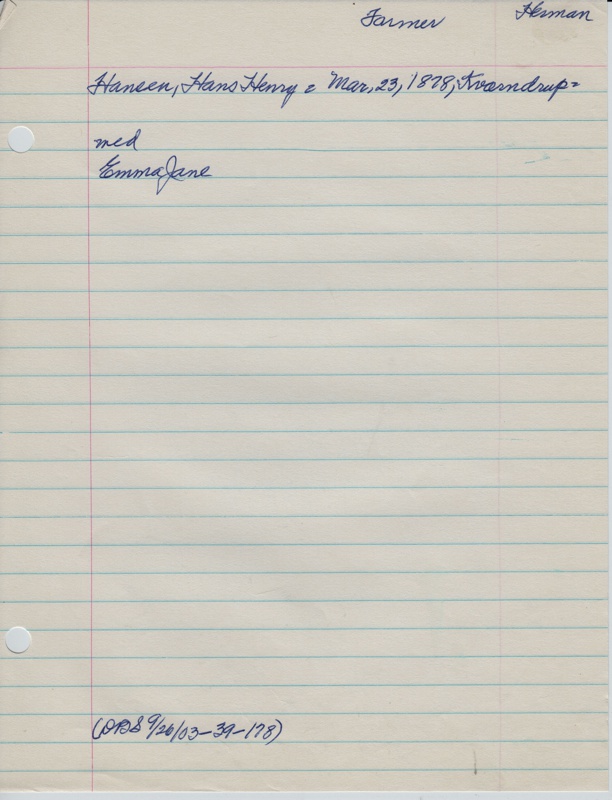 Farmer Herman
Hansen, Hans Henry = Mar, 23, 1878; Kvarndrup=
med
Emma Jane
(DBS 9/26/03-39-178)